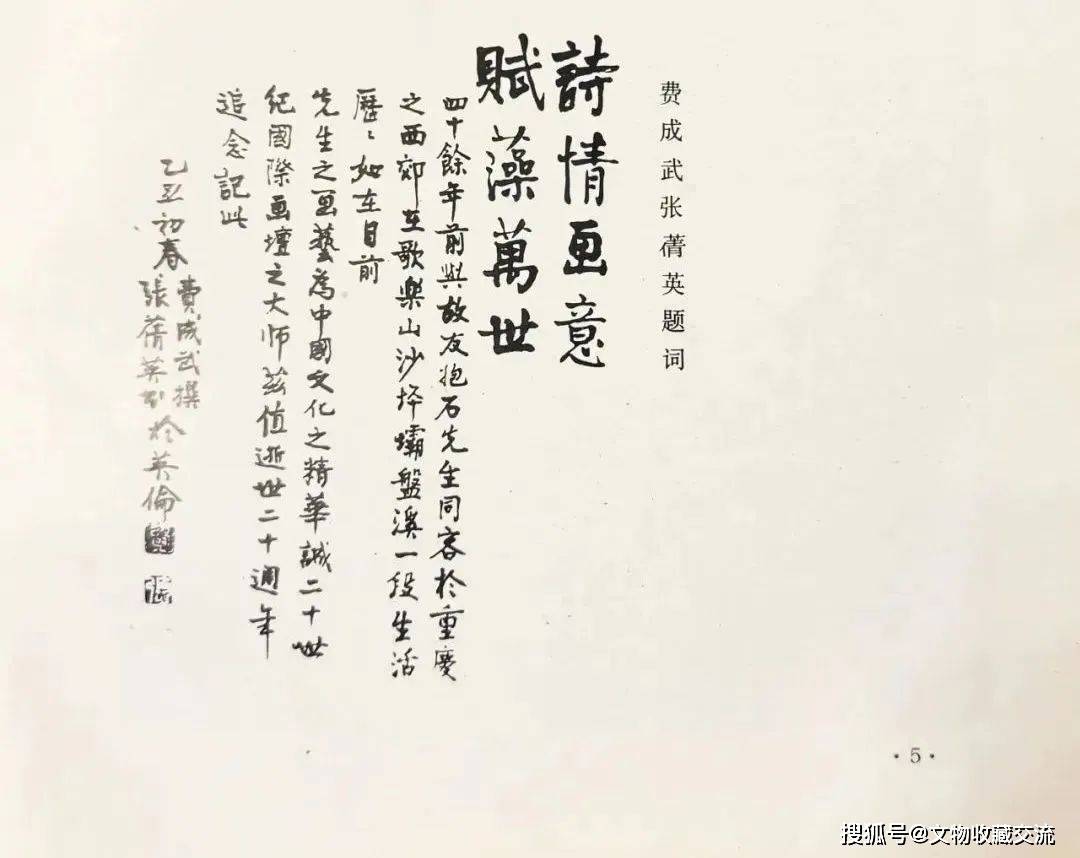 费成武张蒨英题词
詩情画意
賦藻萬世
四十餘年前與故友抱石先生同客於重慶
之西郊在歌樂山沙坪壩盤溪一段生活
歷〻如在目前
先生之画藝為中國文化之精華誠二十世
紀國際画壇之大师兹值逝世二十週年
追念記此
乙丑初春
費成武撰
張蒨英书於英倫
·5·
搜狐号@文物收藏交流